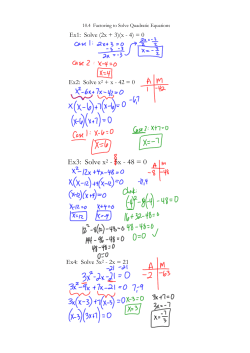 10.4 Factoring to Solve Quadratic Equations
Ex1: Solve (2x + 3)(x - 4) = 0
Case 1: 2x+3=0
-3 -3
2x = -3
2x = -3
2 2
x = -3/2
Case 2: x-4=0
x=4
Ex2: Solve x² + x - 42 = 0
A M
1 -42
x²-6x+7x-42=0
x(x-6)+7(x-6)=0 -6,7
(x-6)(x+7)=0
Case 1: x-6=0 Case 2: x+7=0
x=6 x=-7
Ex3: Solve x² - 8x - 48 = 0
A M
-8 -48
x²-12x+4x-48=0
x(x-12)+4(x-12)=0
(x-12)(x+4)=0
Check
x-12=0 x+4=0
x=12 x=-4
(-4)²-8(-4)-48=0
16+32-48=0
12²-8(12)-48=0 48-48=0
144-96-48=0 0=0 ✓
48-48=0
0=0
Ex4: Solve 3x² - 2x = 21
-21 -21
A M
-2 -63
3x²-2x-21=0
3x²-9x+7x-21=0 7,-9
3x(x-3)+7(x-3)=0
(x-3)(3x+7)=0
x-3=0
x=3
3x+7=0
3x=-7
x=-7/3